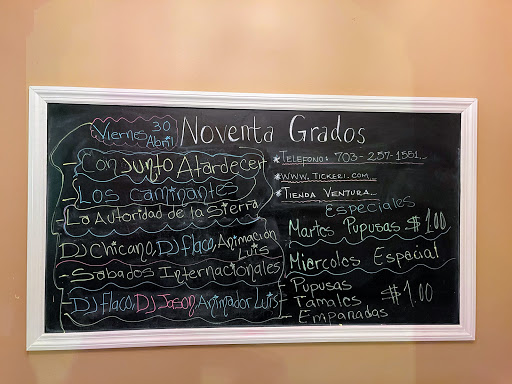 Viernes 30 Abril
Noventa Grados
- Conjunto Atardecer
- Los Caminantes
- La Autoridad de la Sierra
DJ Chicano, DJ Flaco, Animación Luis
- Sabados Internacionales
- DJ Flaco, DJ Jason, Animador Luis
* Telefono: 703-257-1551
* www.Tickeri.com
* Tienda Ventura
Especiales
Martes Pupusas $1.00
Miercoles Especial
- Pupusas
- Tamales $1.00
- Empanadas